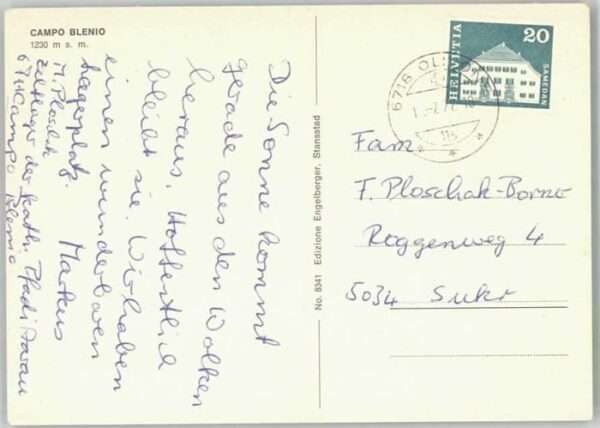 CAMPO BLENIO
1230 m s. m.
Die Sonne kommt
gerade aus den Wolken
heraus. Hoffentlich
bleibt sie. Wir haben
einen wunderbaren
Lagerplatz. Markus
M. Ploschak
Zeltlager der Kath. Pfadi Aarau
Campo Blenio
No. 8341 Edizione Engelberger, Stansstad
HELVETIA
20
SAMEDAN
6716
Fam.
F. Ploschak-Borner
Roggenweg 4
5034 Suhr